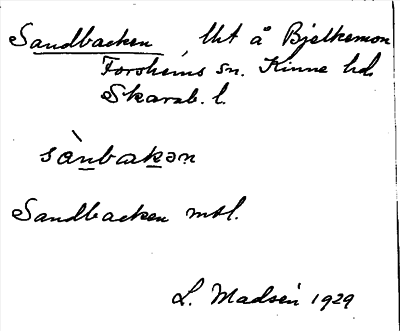 Sandbacken, lht å Bjelkemon
Forshems sn. Kinne hd.
Skarab. l.
sànbakən
Sandbacken mbl.
L. Madsén 1929